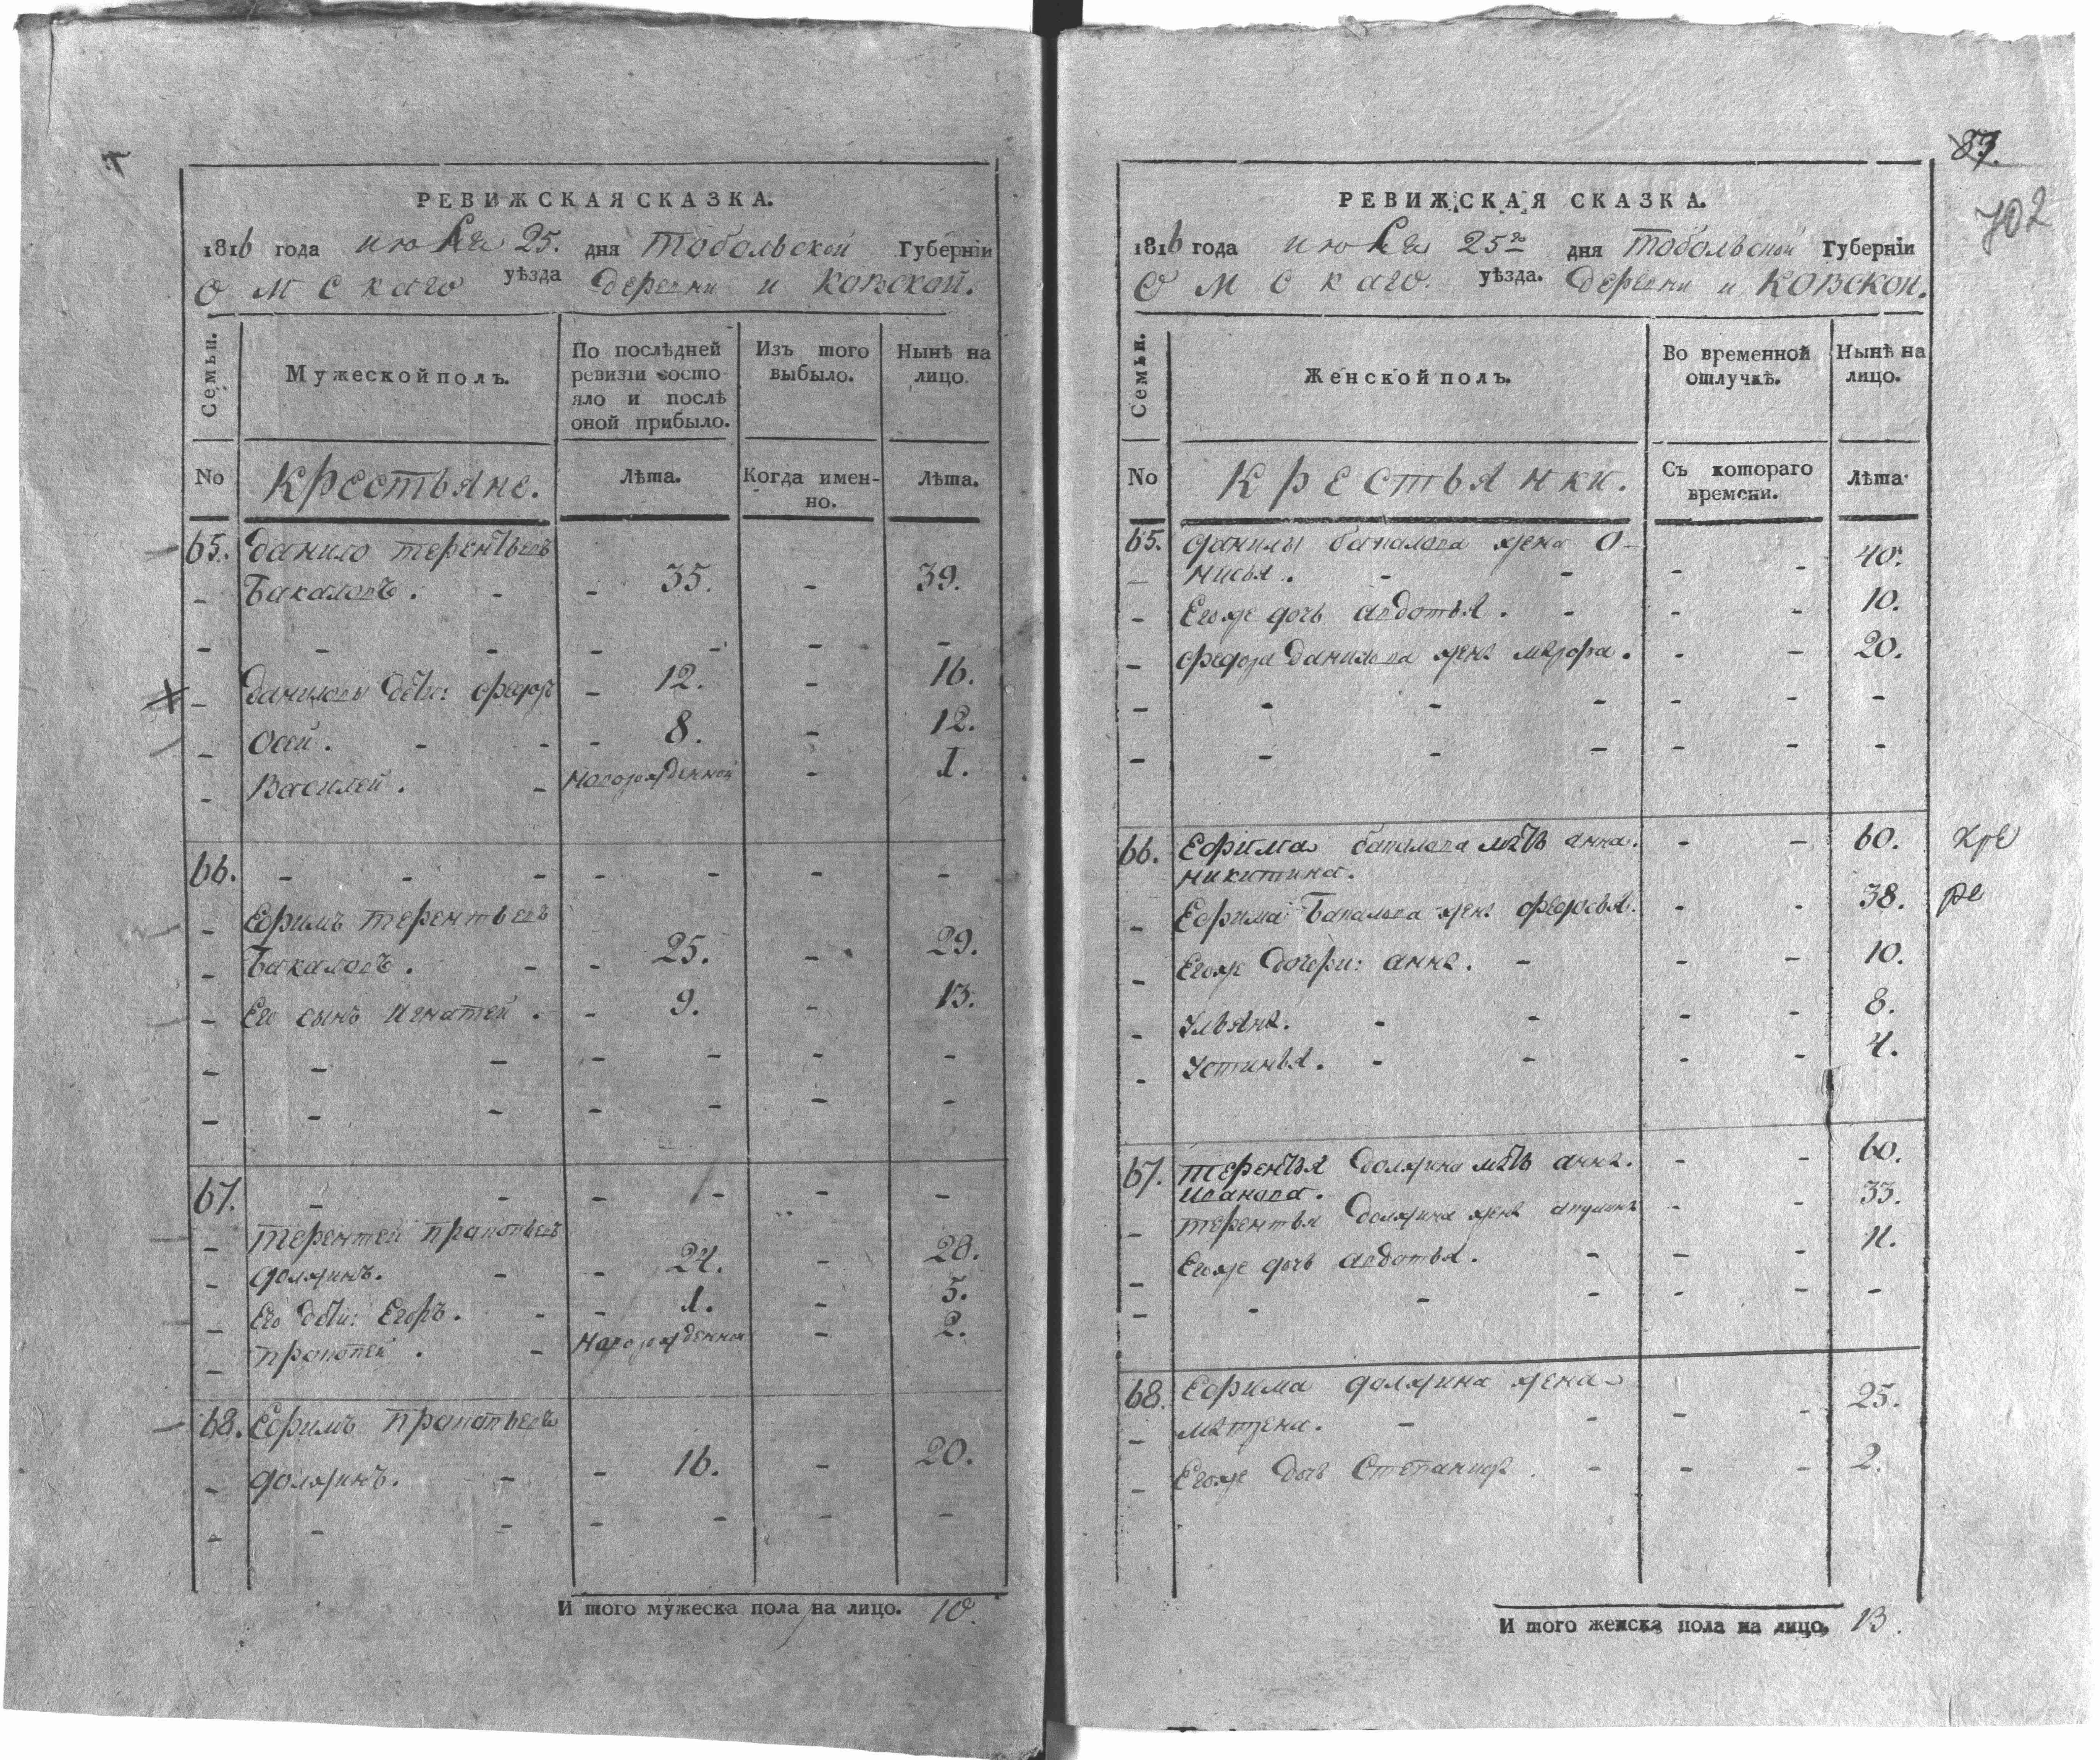 РЕВИЖСКАЯ СКАЗКА.
1816 года июля 25. дня Тобольской Губернїи
Омскаго уѣзда деревни Иковской.
Семьи.
Мужеской полъ.
По послѣдней ревизїи состояло и послѣ оной прибыло.
Изъ того выбыло.
Нынѣ на лицо.
No
Крестьяне.
Лѣта.
Когда именно.
Лѣта.
65. Данило терентьевъ
Бакаловъ. - - 35. - 39.
Даниловы дѣти: федоръ - 12. - 16.
Осей. - - - 8. - 12.
Василей. - новорожденной - 1.
66. - - - - - - -
Ефимъ терентьевъ
Бакаловъ. - - 25. - 29.
Его сынъ игнатей. - 9. - 13.
67. - - - - - -
терентей пракопьевъ
должинъ. - - 24. - 28.
Его дѣти: Егоръ. - - 1. - 5.
пракопей. - новорожденной - 2.
68. Ефимъ пракопьевъ
должинъ. - - 16. - 20.
И того мужеска пола на лицо. 10.
83.
702
РЕВИЖСКАЯ СКАЗКА.
1816 года июля 25го дня тобольской Губернїи
Омскаго. уѣзда. деревни Иковской.
Семьи.
Женской полъ.
Во временной отлучкѣ.
Нынѣ на лицо.
No
Крестьянки.
Съ котораго времени.
Лѣта
65. данилы бакалова жена О-
нисья. - - - - 40.
Егоже дочь авдотья. - - - 10.
федора данилова жена мавра. - - 20.
66. Ефима бакалова мать анна. - - 60.
никитина.
Ефима Бакалова жена федосья. - - 38.
Егоже дочери: анна. - - - 10.
Ульяна. - - - - 8.
Устинья. - - - - 4.
67. терентья должина мать анна. - - 60.
иванова.
терентья должина жена акулина - - 33.
Егоже дочь авдотья. - - - 11.
68. Ефима должина жена
матрена. - - - - 25.
Егоже дочь Степанида. - - - 2.
И того женска пола на лицо, 13.